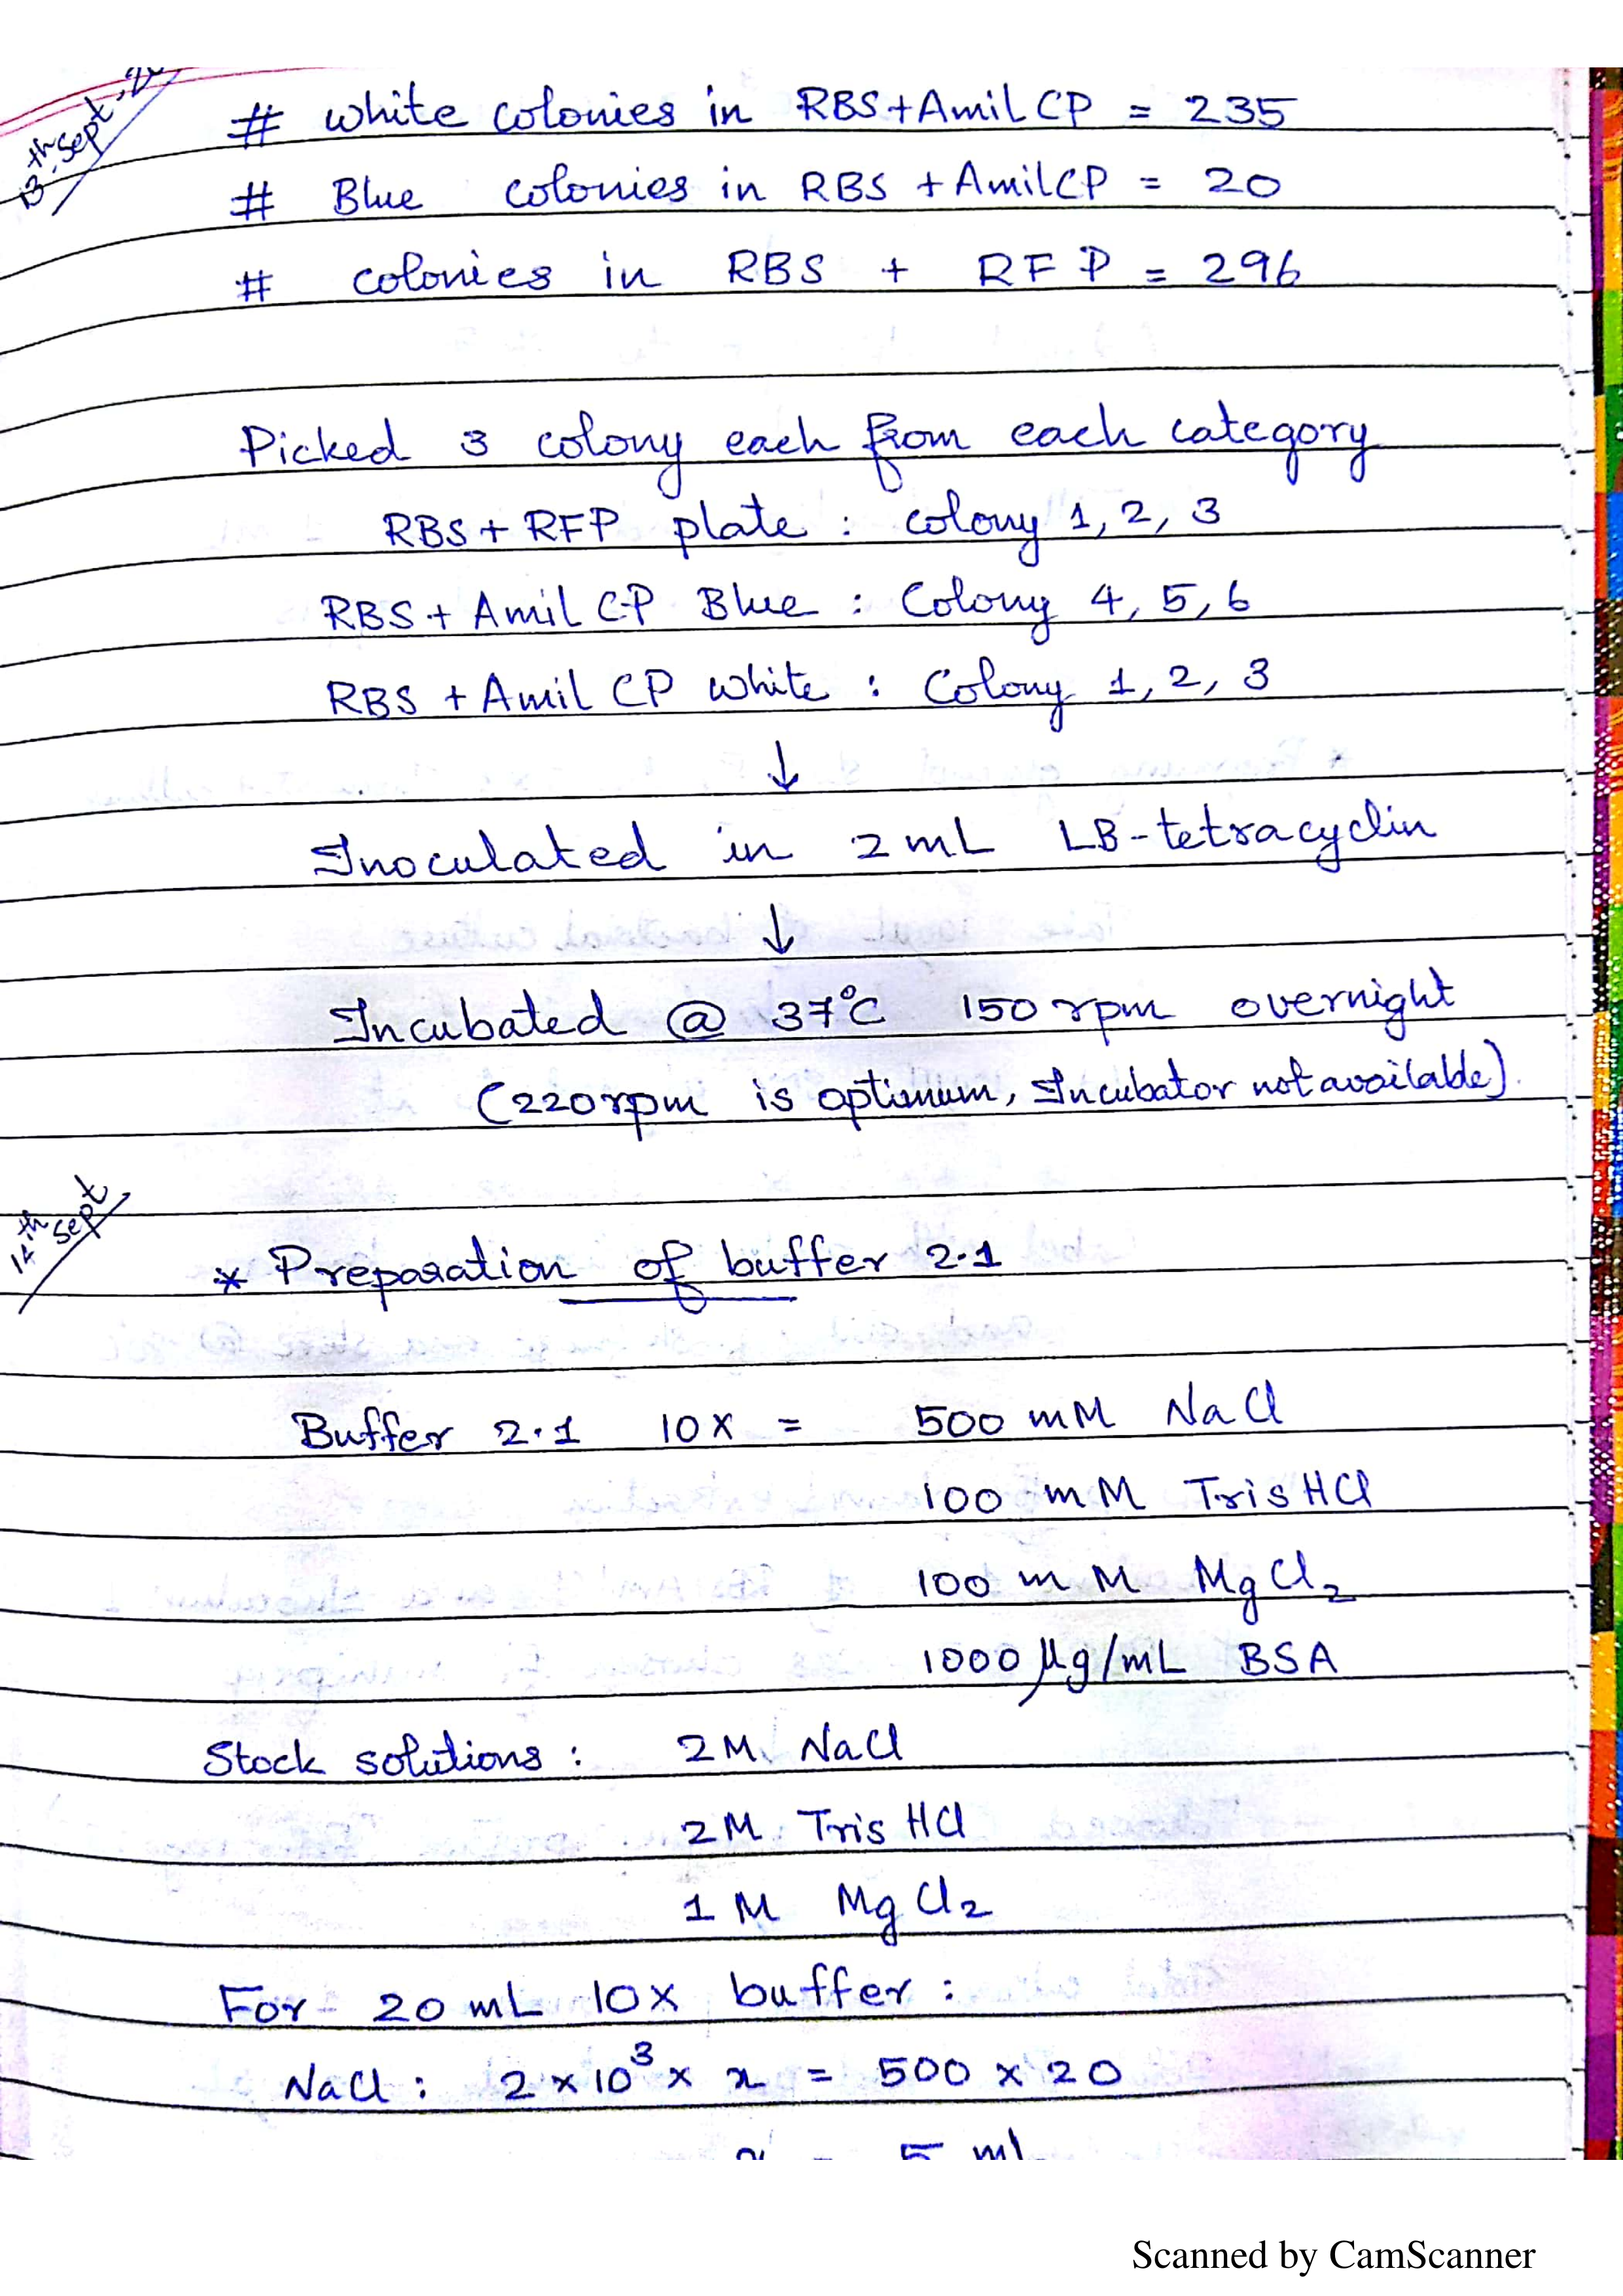 13th Sept,
# white colonies in RBS+Amil CP = 235
# Blue colonies in RBS + AmilCP = 20
# colonies in RBS + RFP = 296
Picked 3 colony each from each category
RBS + RFP plate : colony 1, 2, 3
RBS + Amil CP Blue : Colony 4, 5, 6
RBS + Amil CP white : Colony 1, 2, 3
↓
Inoculated in 2 mL LB-tetracyclin
↓
Incubated @ 37°C 150 rpm overnight
(220 rpm is optimum, Incubator not available).
14th Sept
* Preparation of buffer 2.1
Buffer 2.1 10X = 500 mM NaCl
100 mM Tris HCl
100 mM MgCl₂
1000 μg/mL BSA
Stock solutions : 2M NaCl
2M Tris HCl
1 M MgCl₂
For 20 mL 10X buffer :
NaCl : 2 × 10³ × x = 500 × 20
x = 5 ml
Scanned by CamScanner